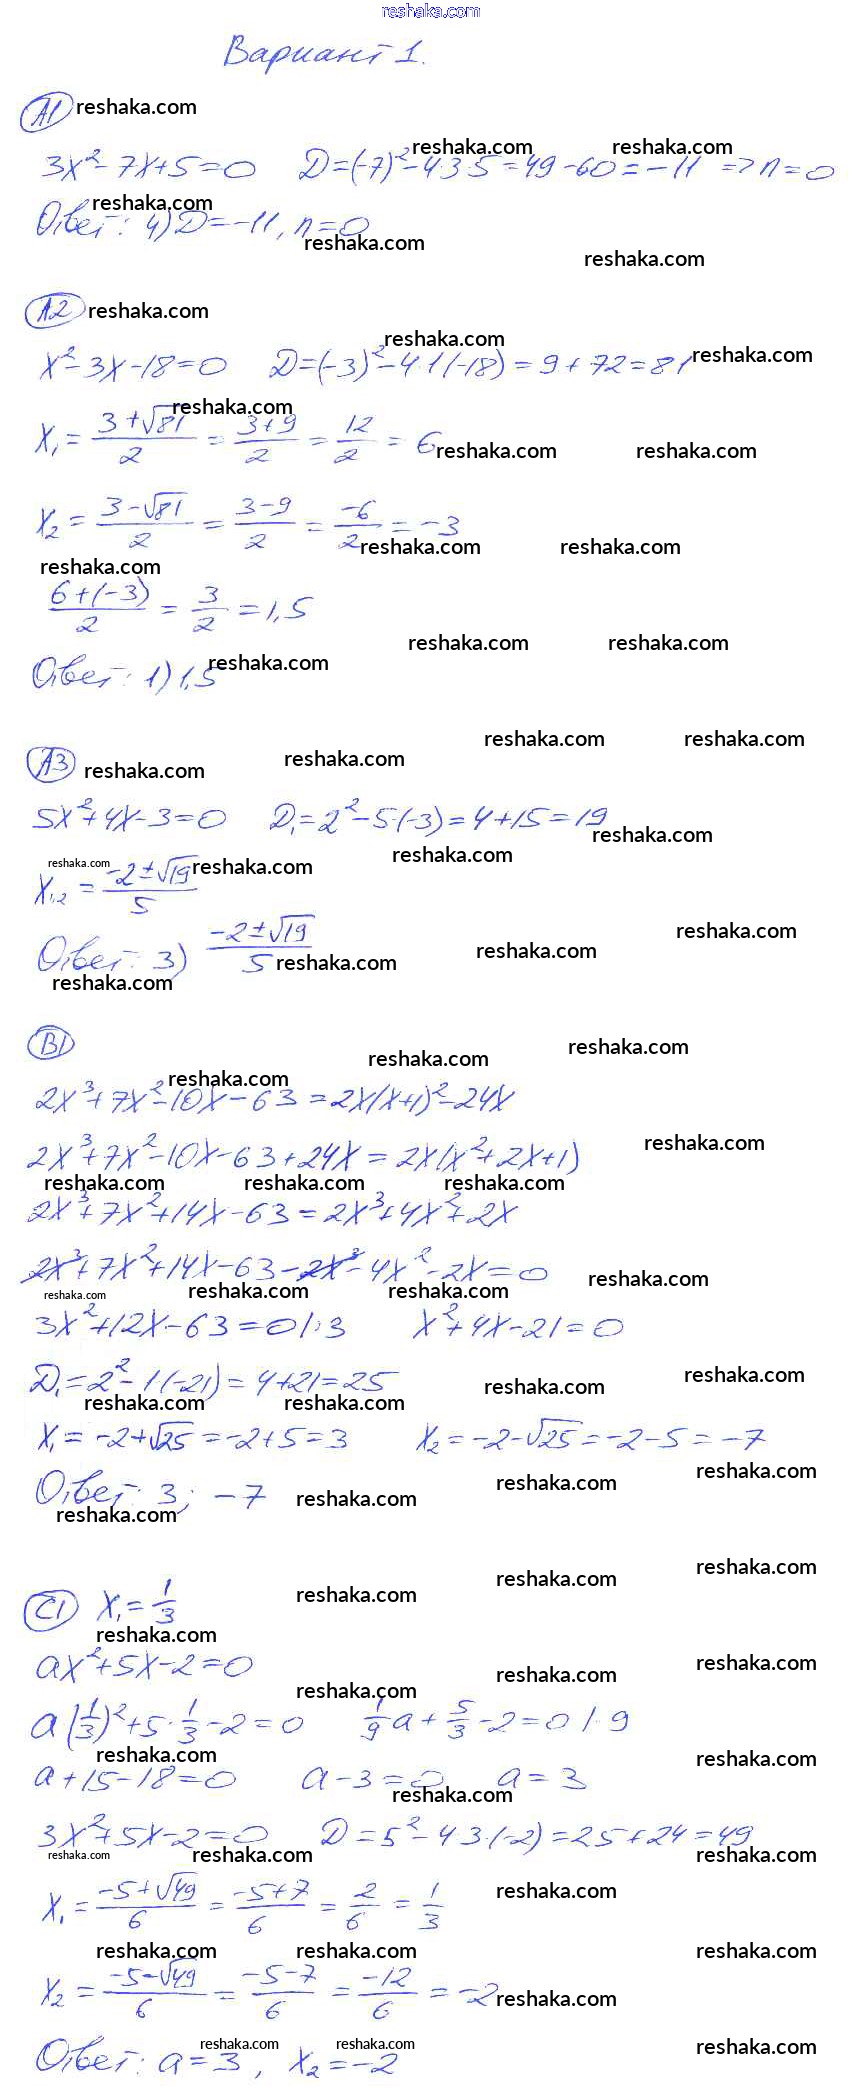 reshaka.com
Вариант 1.
А1 reshaka.com
reshaka.com reshaka.com
3x² - 7x + 5 = 0 D = (-7)² - 4·3·5 = 49 - 60 = -11 => n = 0
reshaka.com
Ответ: 4) D = -11, n = 0
reshaka.com
reshaka.com
А2 reshaka.com
reshaka.com
x² - 3x - 18 = 0 D = (-3)² - 4·1·(-18) = 9 + 72 = 81 reshaka.com
reshaka.com
x₁ = (3 + √81)/2 = (3 + 9)/2 = 12/2 = 6 reshaka.com reshaka.com
x₂ = (3 - √81)/2 = (3 - 9)/2 = -6/2 = -3
reshaka.com reshaka.com
reshaka.com
(6 + (-3))/2 = 3/2 = 1,5
reshaka.com reshaka.com
Ответ: 1) 1,5 reshaka.com
reshaka.com reshaka.com
А3 reshaka.com reshaka.com
5x² + 4x - 3 = 0 D₁ = 2² - 5·(-3) = 4 + 15 = 19
reshaka.com
reshaka.com
reshaka.com reshaka.com
x₁,₂ = (-2 ± √19)/5
reshaka.com
Ответ: 3) (-2 ± √19)/5
reshaka.com reshaka.com
reshaka.com
В1
reshaka.com reshaka.com
reshaka.com
2x³ + 7x² - 10x - 63 = 2x(x + 1)² - 24x
reshaka.com
2x³ + 7x² - 10x - 63 + 24x = 2x(x² + 2x + 1)
reshaka.com reshaka.com reshaka.com
2x³ + 7x² + 14x - 63 = 2x³ + 4x² + 2x
2x³ + 7x² + 14x - 63 - 2x³ - 4x² - 2x = 0
reshaka.com
reshaka.com reshaka.com reshaka.com
3x² + 12x - 63 = 0 | : 3 x² + 4x - 21 = 0
D₁ = 2² - 1·(-21) = 4 + 21 = 25
reshaka.com reshaka.com
reshaka.com reshaka.com
x₁ = -2 + √25 = -2 + 5 = 3 x₂ = -2 - √25 = -2 - 5 = -7
reshaka.com
reshaka.com
Ответ: 3; -7 reshaka.com
reshaka.com
reshaka.com
reshaka.com
С1 x₁ = 1/3 reshaka.com
reshaka.com
ax² + 5x - 2 = 0
reshaka.com reshaka.com
reshaka.com
a(1/3)² + 5·1/3 - 2 = 0 1/9 a + 5/3 - 2 = 0 | · 9
reshaka.com reshaka.com
a + 15 - 18 = 0 a - 3 = 0 a = 3
reshaka.com
3x² + 5x - 2 = 0 D = 5² - 4·3·(-2) = 25 + 24 = 49
reshaka.com reshaka.com reshaka.com
x₁ = (-5 + √49)/6 = (-5 + 7)/6 = 2/6 = 1/3
reshaka.com
reshaka.com reshaka.com reshaka.com
x₂ = (-5 - √49)/6 = (-5 - 7)/6 = -12/6 = -2 reshaka.com
reshaka.com reshaka.com reshaka.com
Ответ: a = 3, x₂ = -2